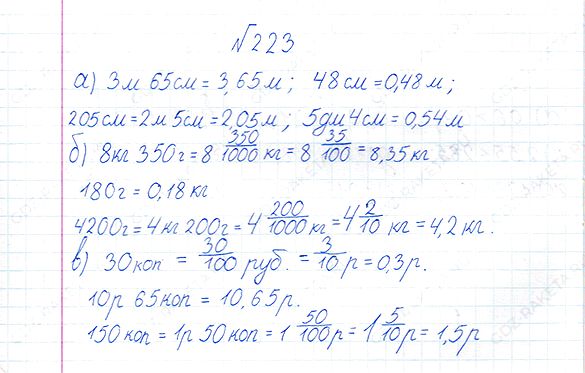 №223
а) 3м 65см = 3,65м; 48см = 0,48м;
205см = 2м 5см = 2,05м; 5дм 4см = 0,54м
б) 8кг 350г = 8 350/1000 кг = 8 35/100 = 8,35кг
180г = 0,18кг
4200г = 4кг 200г = 4 200/1000 кг = 4 2/10 кг = 4,2кг.
в) 30коп = 30/100 руб. = 3/10 р = 0,3р.
10р 65коп = 10,65р.
150коп = 1р 50коп = 1 50/100 р = 1 5/10 р = 1,5р